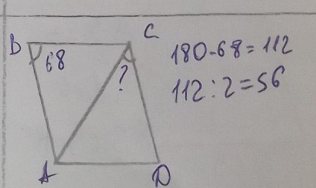 B C
68
?
A D
180-68=112
112:2=56